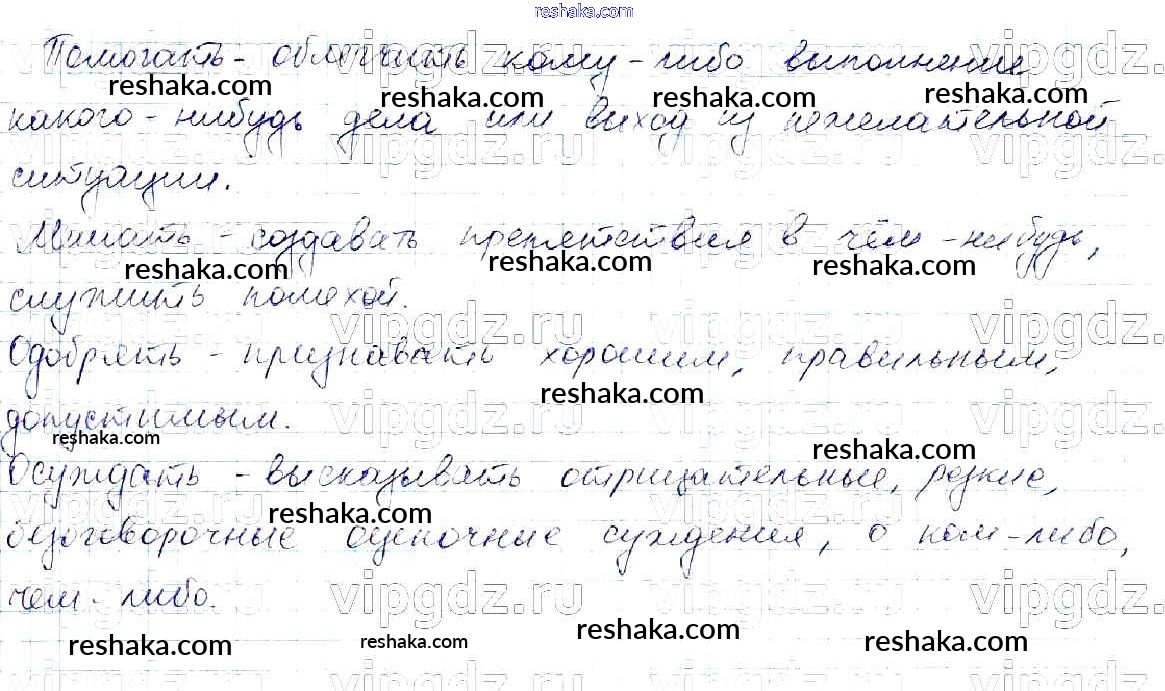 reshaka.com
Помогать - облегчать кому-либо выполнение
reshaka.com reshaka.com reshaka.com reshaka.com
какого-нибудь дела или выход из нежелательной
vipgdz.ru vipgdz.ru
ситуации.
Мешать - создавать препятствия в чём-нибудь,
reshaka.com reshaka.com reshaka.com
служить помехой.
vipgdz.ru vipgdz.ru
Одобрять - признавать хорошим, правильным,
reshaka.com
допустимым.
vipgdz.ru
reshaka.com reshaka.com
Осуждать - высказывать отрицательные, резкие,
reshaka.com
безоговорочные оценочные суждения, о ком-либо,
чем-либо.
vipgdz.ru vipgdz.ru
reshaka.com reshaka.com reshaka.com reshaka.com